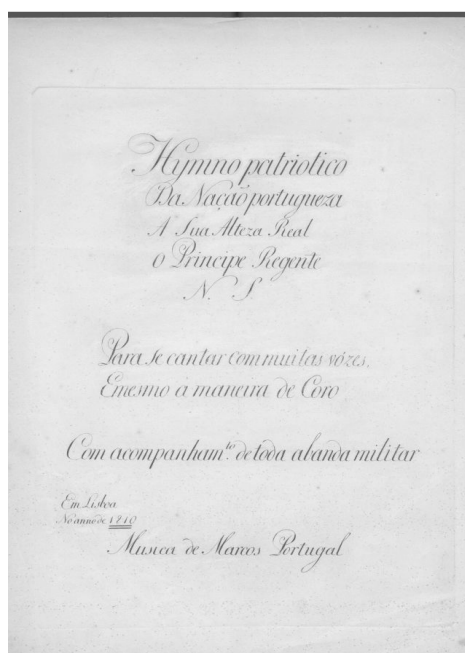 Hymno patriotico
Da Nação portugueza
A Sua Alteza Real
O Principe Regente
N. S
Para se cantar com muitas vózes,
E mesmo a maneira de Coro
Com acompanham.to de toda a banda militar
Em Lisboa
No anno de 1810
Musica de Marcos Portugal